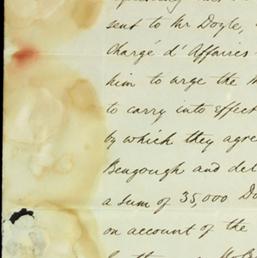 sent to Mr Doyle,
Chargé d'Affaires
him to urge the
to carry into effect
by which they agre
Bengough and del
a sum of 35,000 Do
on account of the